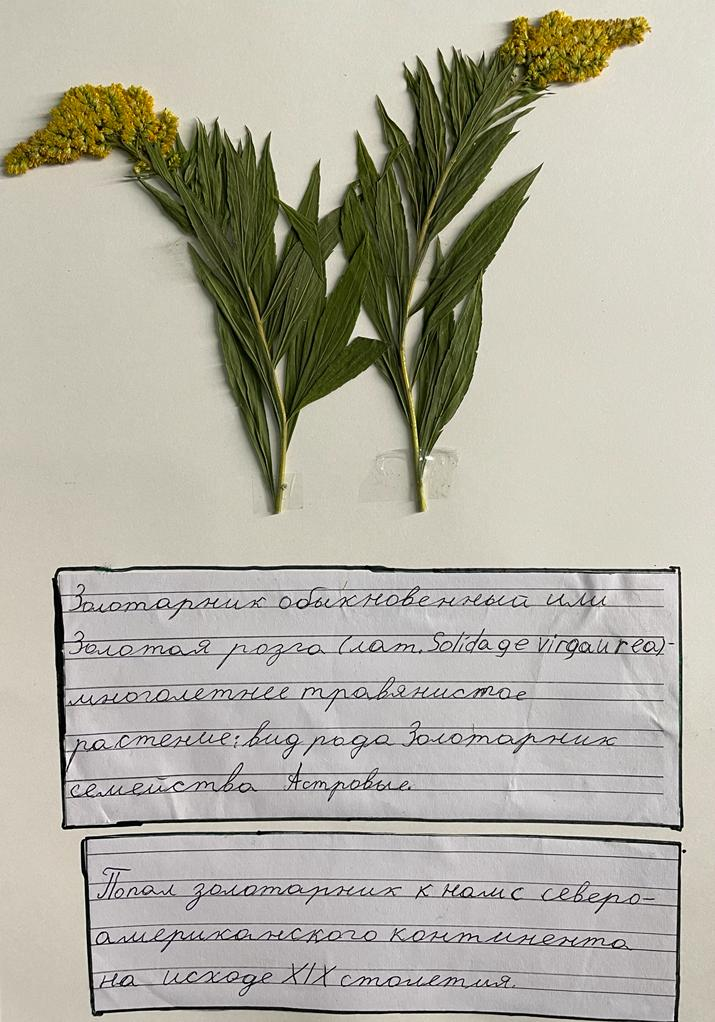 Золотарник обыкновенный или
Золотая розга (лат. Solidage virgaurea)-
многолетнее травянистое
растение; вид рода Золотарник
семейства Астровые.
Попал золотарник к нам с северо-
американского континента
на исходе XIX столетия.